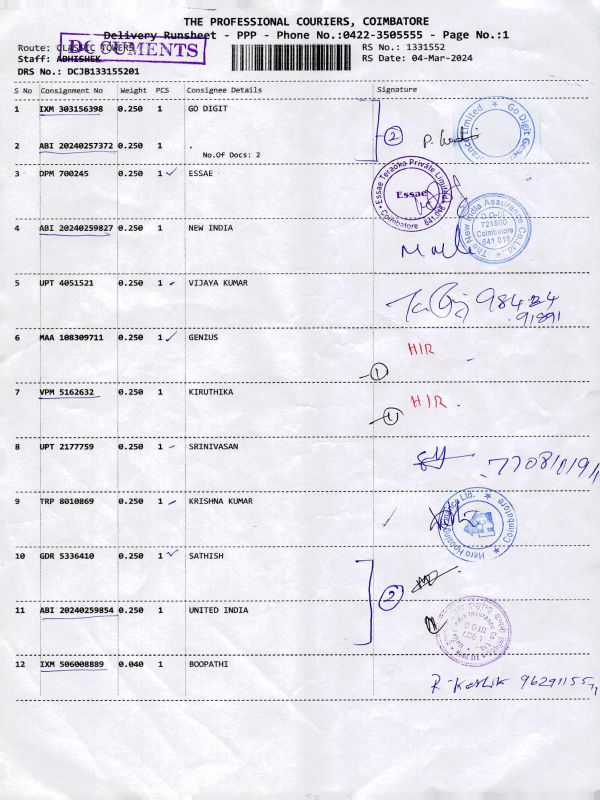 THE PROFESSIONAL COURIERS, COIMBATORE
Delivery Runsheet - PPP - Phone No.:0422-3505555 - Page No.:1
Route: CLASSIC TOWERS
DOCUMENTS
RS No.: 1331552
Staff: ABHISHEK
RS Date: 04-Mar-2024
DRS No.: DCJB133155201
S No Consignment No Weight PCS Consignee Details Signature
1 IXM 303156398 0.250 1 GO DIGIT
2
2 ABI 20240257372 0.250 1 .
No.Of Docs: 2
3 DPM 700245 0.250 1 ESSAE
Essae Teraoka Private Limited
Essae
Coimbatore 641 018
4 ABI 20240259827 0.250 1 NEW INDIA
The New India Assurance Co.Ltd.
721600
Coimbatore
641 018
5 UPT 4051521 0.250 1 VIJAYA KUMAR
6 MAA 108309711 0.250 1 GENIUS
HIR
1
7 VPM 5162632 0.250 1 KIRUTHIKA
HIR
8 UPT 2177759 0.250 1 SRINIVASAN
9 TRP 8010869 0.250 1 KRISHNA KUMAR
Coimbatore
10 GDR 5336410 0.250 1 SATHISH
2
11 ABI 20240259854 0.250 1 UNITED INDIA
12 IXM 506008889 0.040 1 BOOPATHI